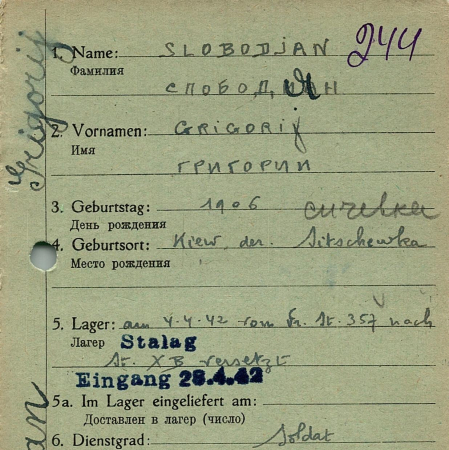 1. Name: SLOBODJAN 244
Фамилия
СЛОБОДЯН
2. Vornamen: GRIGORIJ
Имя
ГРИГОРИЙ
3. Geburtstag: 1906
День рождения
4. Geburtsort: Kiew, der. Sitschewka
Место рождения
5. Lager: am 4.4.42 vom Fr. St. 357 nach
Лагерь Stalag
St. XB versetzt
Eingang 28.4.42
5a. Im Lager eingeliefert am:
Доставлен в лагерь (число)
6. Dienstgrad: Soldat
Grigorij
an